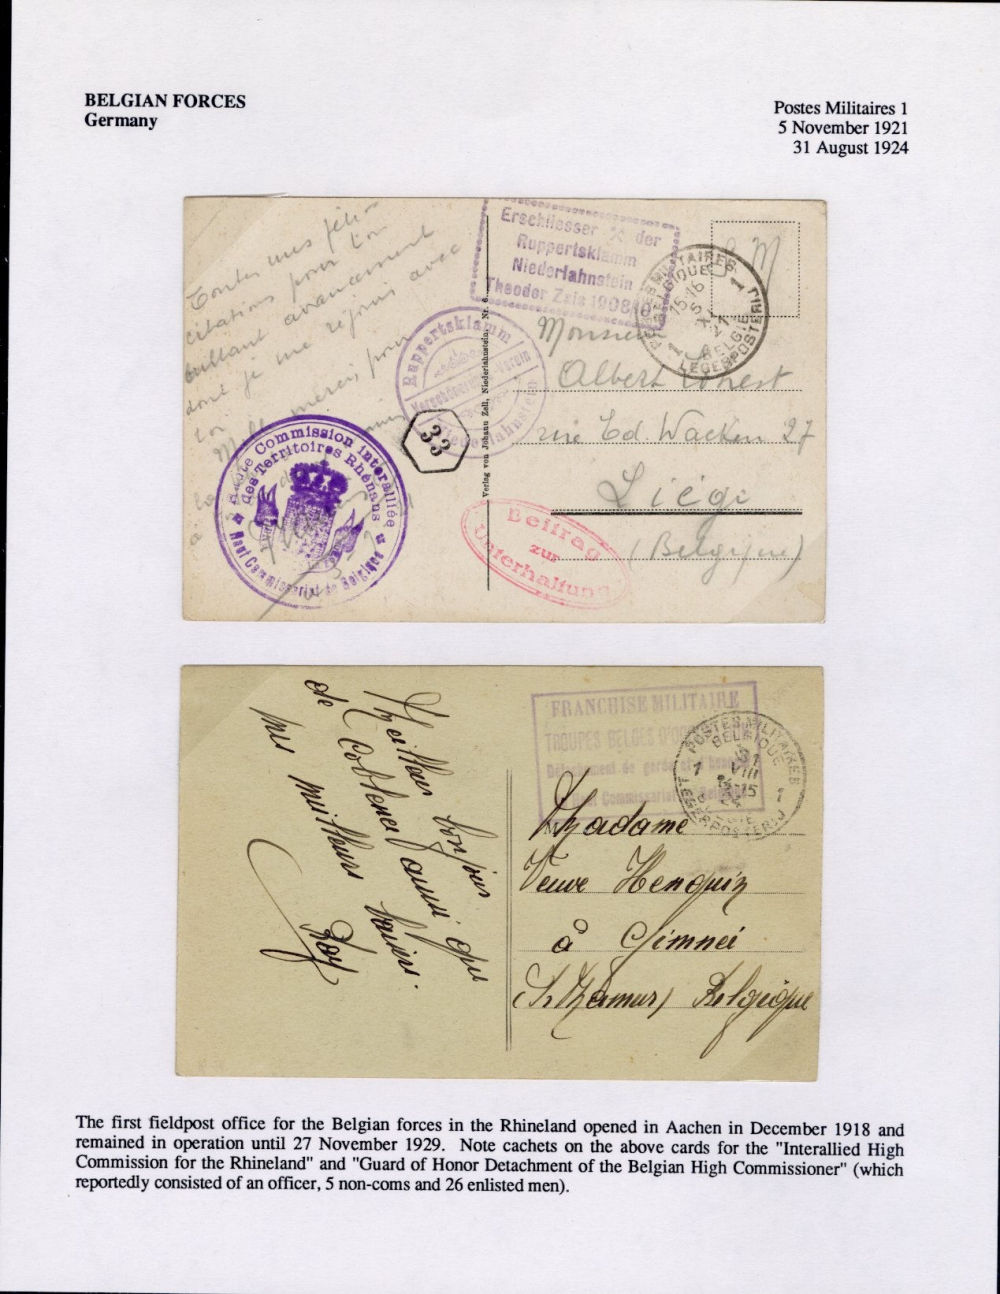 BELGIAN FORCES
Germany
Postes Militaires 1
5 November 1921
31 August 1924
Toutes mes féli-
citations pour ton
brillant avancement
dont je me réjouis avec
toi
Mille mercis pour
Erschliesser der
Ruppertsklamm
Niederlahnstein
Theodor Zais 1908/10
Ruppertsklamm
Verschönerungs-Verein
Niederlahnstein
33
Haute Commission interalliée
des Territoires Rhénans
Haut Commissariat de Belgique
Verlag von Johann Zell, Niederlahnstein, Nr. 6.
Beitrag
zur
Unterhaltung
S M
POSTES MILITAIRES
BELGIQUE
15-16
5
XI
21
BELGIE
LEGERPOSTERIJ
1 1
Monsieur
Albert
rue Ed. Wacken 27
Liége
(Belgique)
FRANCHISE MILITAIRE
TROUPES BELGES
Détachement de garde d'honneur
Haut Commissariat Belgique
POSTES MILITAIRES
BELGIQUE
VIII
15
LEGERPOSTERIJ
1
Meilleur bonjour
de Coblence ainsi que
mes meilleurs baisers.
M
Madame
Veuve Henquin
à Gimnei
(Pr Namur) Belgique
The first fieldpost office for the Belgian forces in the Rhineland opened in Aachen in December 1918 and
remained in operation until 27 November 1929. Note cachets on the above cards for the "Interallied High
Commission for the Rhineland" and "Guard of Honor Detachment of the Belgian High Commissioner" (which
reportedly consisted of an officer, 5 non-coms and 26 enlisted men).